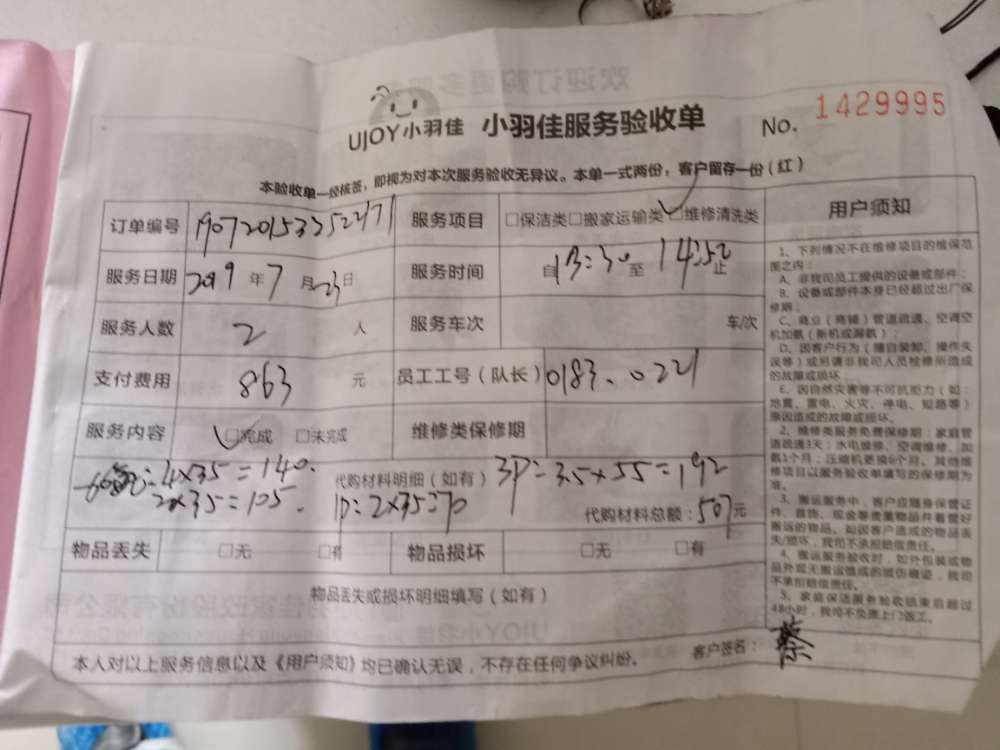 UJOY小羽佳 小羽佳服务验收单 No. 1429995
本验收单一经核签，即视为对本次服务验收无异议。本单一式两份，客户留存一份（红）
订单编号 服务项目 □保洁类□搬家运输类□维修清洗类
服务日期 2019年7月23日 服务时间 自13:30至14:52止
服务人数 2人 服务车次 车/次
支付费用 863元 员工工号（队长）0183.0221
服务内容 □完成 □未完成 维修类保修期
4×35=140. 代购材料明细（如有）3P=3.5×55=192
1P=2×35=70 代购材料总额：507元
物品丢失 □无 □有 物品损坏 □无 □有
物品丢失或损坏明细填写（如有）
本人对以上服务信息以及《用户须知》均已确认无误，不存在任何争议纠纷。 客户签名：蔡
用户须知
1、下列情况不在维修项目的维保范
围之内：
A、非我司员工提供的设备或部件；
B、设备或部件本身已经超过出厂保
修期；
C、商业（商铺）管道疏通、空调空
机加氨（新机或漏氨）；
D、因客户行为（擅自装卸、操作失
误等）或另请非我司人员检修所造成
的故障或损坏
E、因自然灾害等不可抗拒力（如：
地震、雷电、火灾、停电、短路等）
原因造成的故障或损坏。
2、维修类服务免费保修期：家庭管
道疏通3天；水电维修、空调维修、加
氨1个月；压缩机更换6个月。其他维
修项目以服务验收单填写的保修期为
准。
3、搬运服务中，客户应随身保管证
件、首饰、现金等贵重物品并看管好
搬运的物品。如因客户造成的物品丢
失/损坏，我司不承担赔偿责任。
4、搬运服务验收时，如外包装或物
品外观无搬运造成的损伤痕迹，我司
不承担赔偿责任。
5、家庭保洁服务验收结束后超过
48小时，我司不负责上门返工。